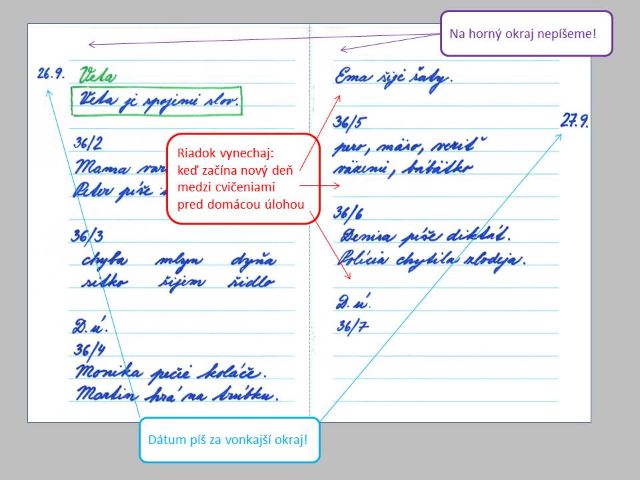 Na horný okraj nepíšeme!
26.9. Veta
Veta je spojenie slov.
36/2
Mama
Peter píše
36/3
chyba mlyn dyňa
sitko šijem šidlo
D.ú.
36/4
Monika pečie koláče.
Martin hrá na trúbku.
Riadok vynechaj:
keď začína nový deň
medzi cvičeniami
pred domácou úlohou
Ema šije šaty.
36/5
27.9.
pero, mäso, veriť
väzenie, bábätko
36/6
Denisa píše diktát.
Polícia chytila zlodeja.
D.ú.
36/7
Dátum píš za vonkajší okraj!